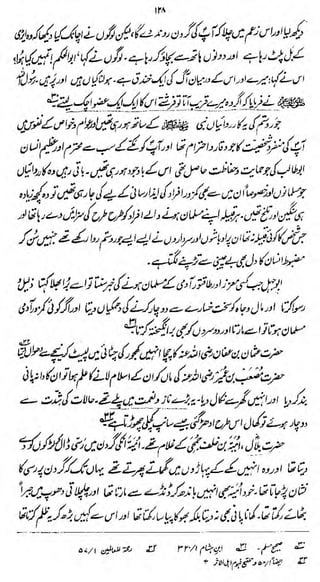 ۱۳۸
دیکھ لیا اور اس زعم میں چلا کہ آپ کی گردن روند دے گا، لیکن لوگوں نے اچانک کیا دیکھا کہ وہ ایڑی
کے بل پلٹ رہا ہے اور دونوں ہاتھ سے بچاؤ کر رہا ہے۔ لوگوں نے کہا، ابو الحکم! تمہیں کیا ہوا؟
اس نے کہا، میرے اور اس کے درمیان آگ کی ایک خندق ہے۔ ہولناکیاں ہیں اور پر ہیں۔ رسول اللہ
ﷺ نے فرمایا کہ اگر وہ میرے قریب آتا تو فرشتے اس کا ایک ایک عضو اچک لیتے
جور و ستم کی یہ کارروائیاں نبی ﷺ کے ساتھ ہو رہی تھیں اور عوام و خواص کے نفوس میں
آپ کی منفرد شخصیت کا جو وقار و احترام تھا اور آپ کو مکے کے سب سے محترم اور عظیم انسان
ابو طالب کی جو حمایت و حفاظت حاصل تھی اس کے باوجود ہو رہی تھیں۔ باقی رہیں وہ کارروائیاں
جو مسلمانوں اور خصوصاً ان میں سے بھی کمزور افراد کی ایذا رسانی کے لیے کی جا رہی تھیں تو وہ کچھ زیادہ
ہی سنگین اور تلخ تھیں۔ ہر قبیلہ اپنے مسلمان ہونے والے افراد کو طرح طرح کی سزائیں دے رہا تھا اور
جس شخص کا کوئی قبیلہ نہ تھا ان پر اوباشوں اور سرداروں نے ایسے ایسے جور و ستم روا رکھے تھے جنہیں سن کر
مضبوط انسان کا دل بھی بے چینی سے تڑپنے لگتا ہے۔
ابو جہل جب کسی معزز اور طاقتور آدمی کے مسلمان ہونے کی خبر سنتا تو اسے برا بھلا کہتا ذلیل و
رسوا کرتا اور مال و جاہ کو سخت خسارے سے دوچار کرنے کی دھمکیاں دیتا اور اگر کوئی کمزور آدمی
مسلمان ہوتا تو اسے مارتا اور دوسروں کو بھی برانگیختہ کرتا
حضرت عثمان بن عفان رضی اللہ عنہ کا چچا انہیں کھجور کی چٹائی میں لپیٹ کر نیچے سے دھواں دیتا
حضرت مصعب بن عمیر رضی اللہ عنہ کی ماں کو ان کے اسلام لانے کا علم ہوا تو ان کا دانہ پانی
بند کر دیا اور انہیں گھر سے نکال دیا۔ یہ بڑے ناز و نعمت میں پلے تھے۔ حالات کی شدت سے
دوچار ہوئے تو کھال اس طرح ادھڑ گئی جیسے سانپ کچلی چھوڑتا ہے
حضرت بلال، امیہ بن خلف جمحی کے غلام تھے۔ امیہ انکی گردن میں رسی ڈال کر لڑکوں کو دے
دیتا تھا اور وہ انہیں مکے کے پہاڑوں میں گھماتے پھرتے تھے یہاں تک کہ گردن پر رسی کا
نشان پڑ جاتا تھا۔ خود امیہ بھی انہیں باندھ کر ڈنڈے سے مارتا تھا اور چلچلاتی دھوپ میں جبراً
بٹھائے رکھتا تھا۔ کھانا پانی بھی نہ دیتا بلکہ بھوکا پیاسا رکھتا تھا اور اس سے کہیں بڑھ کر یہ ظلم کرتا تھا
صحیح مسلم۔ ابن ہشام ۱/۳۲۰ رحمۃ للعالمین ۱/۵۷